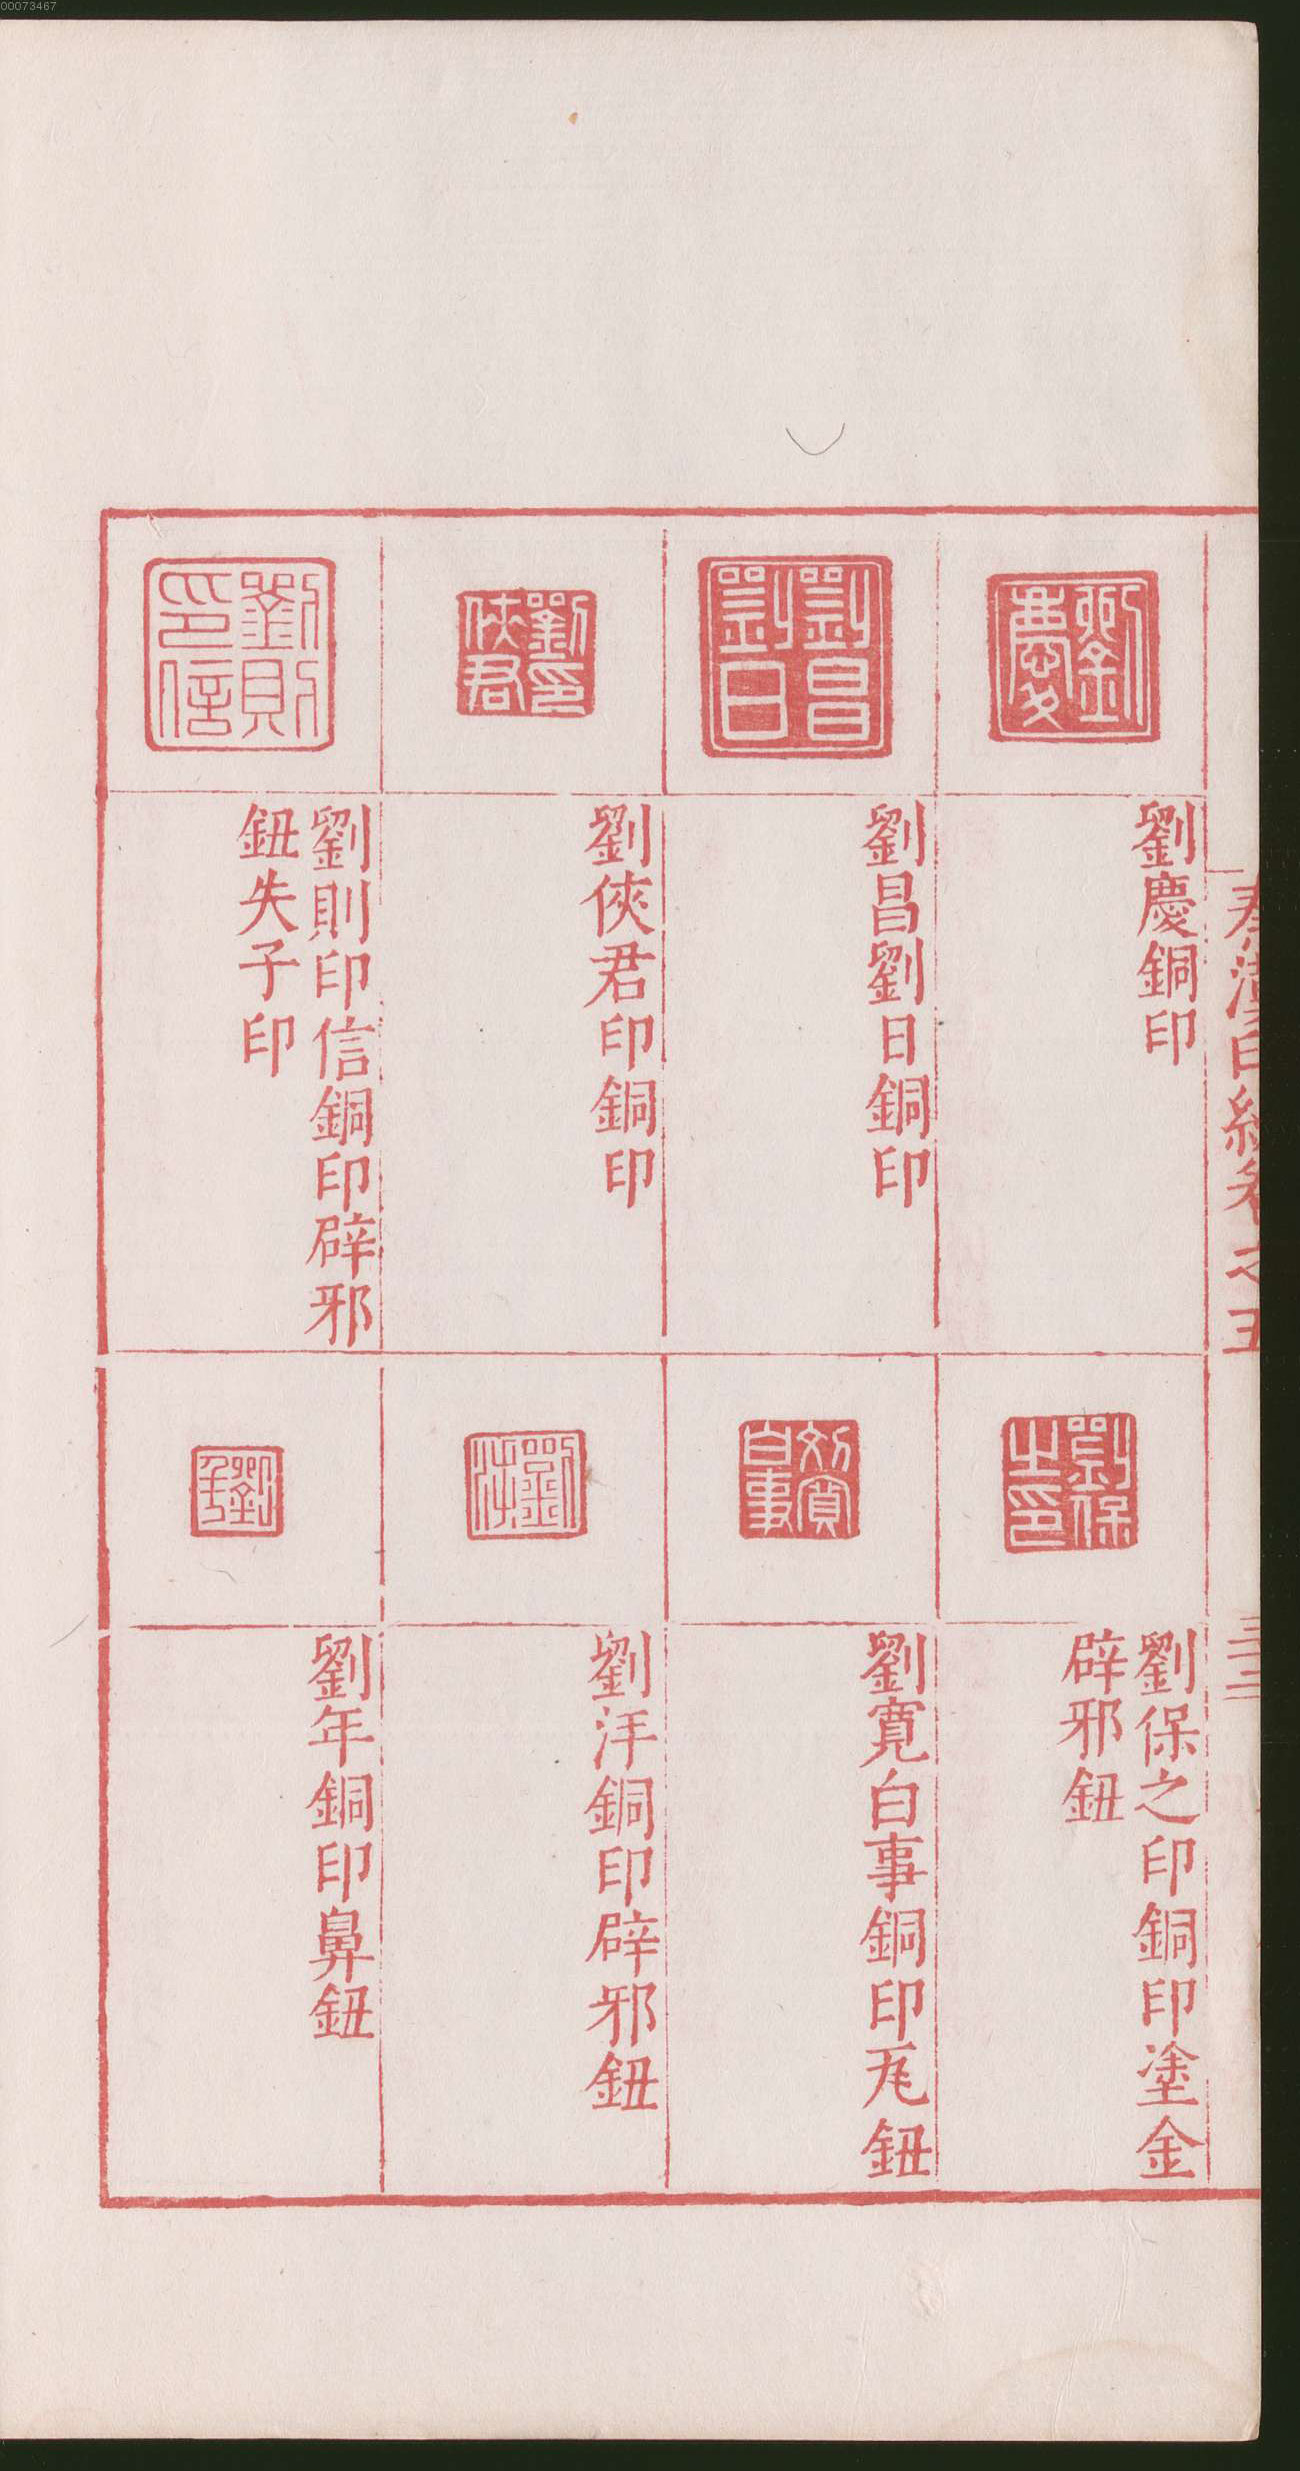 00073467
秦漢印統卷之五
三十二
劉慶
劉慶銅印
劉昌
劉日
劉昌劉日銅印
劉印
俠君
劉俠君印銅印
劉則
印信
劉則印信銅印辟邪
鈕失子印
劉保
之印
劉保之印銅印塗金
辟邪鈕
劉寛
白事
劉寛白事銅印瓦鈕
劉洋
劉洋銅印辟邪鈕
劉年
劉年銅印鼻鈕